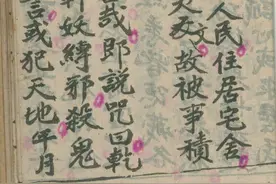 人民住居宅舍
故被事積
哉即説咒曰乾
斬妖縛邪殺鬼
言或犯天地年月